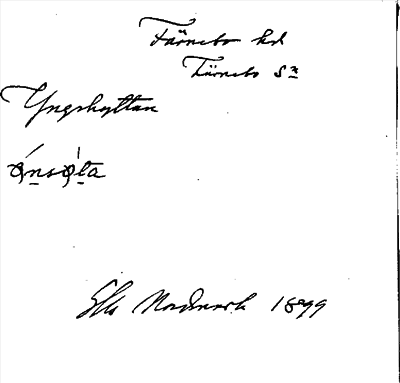 Färnebo hd
Färnebo sn
Yngshyttan
ý̱nsø̀ṯa
Elis Nordmark 1899